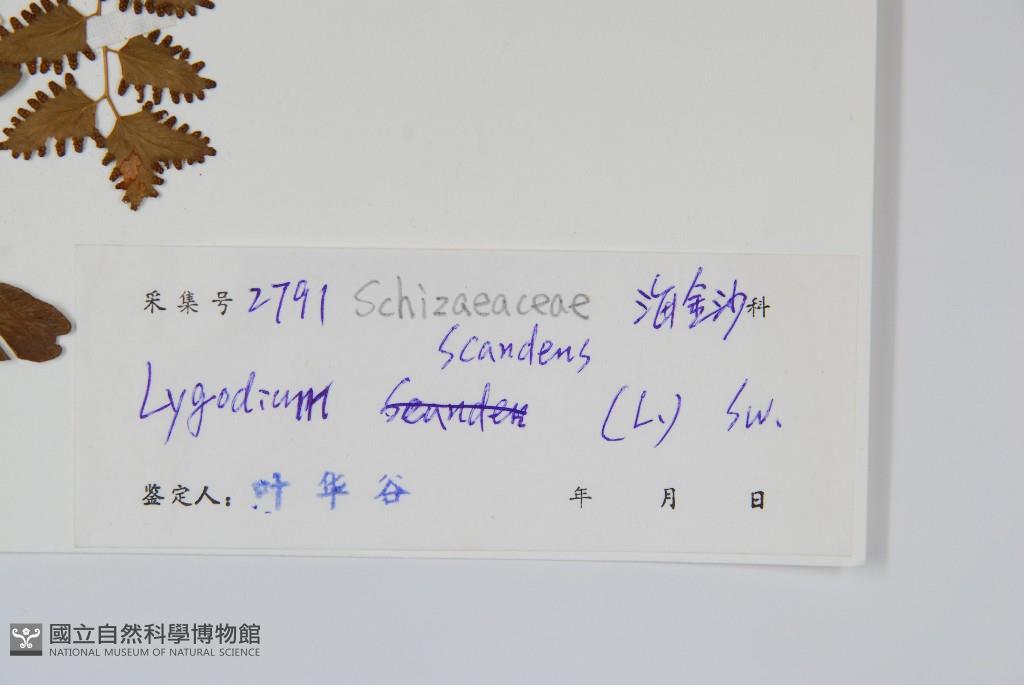 采集号 2791 Schizaeaceae 海金沙科
scandens
Lygodium (L.) Sw.
鉴定人: 叶华谷 年 月 日
國立自然科學博物館
NATIONAL MUSEUM OF NATURAL SCIENCE